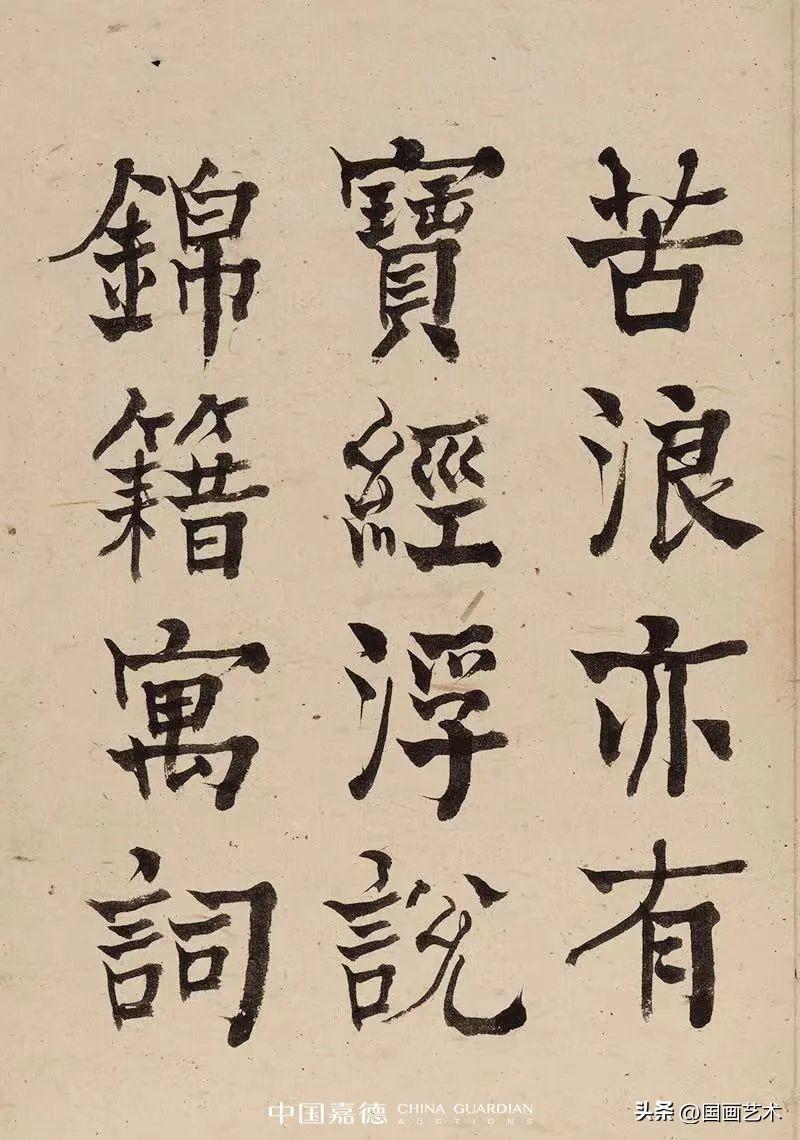 苦浪亦有
寶經浮說
錦籍寓詞
中国嘉德 CHINA GUARDIAN
AUCTIONS
头条 @国画艺术